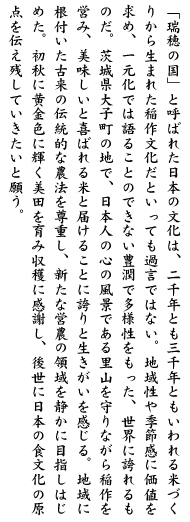 「瑞穂の国」と呼ばれた日本の文化は、二千年とも三千年ともいわれる米づく
りから生まれた稲作文化だといっても過言ではない。地域性や季節感に価値を
求め、一元化では語ることのできない豊潤で多様性をもった、世界に誇れるも
のだ。茨城県大子町の地で、日本人の心の風景である里山を守りながら稲作を
営み、美味しいと喜ばれる米と届けることに誇りと生きがいを感じる。地域に
根付いた古来の伝統的な農法を尊重し、新たな営農の領域を静かに目指しはじ
めた。初秋に黄金色に輝く美田を育み収穫に感謝し、後世に日本の食文化の原
点を伝え残していきたいと願う。